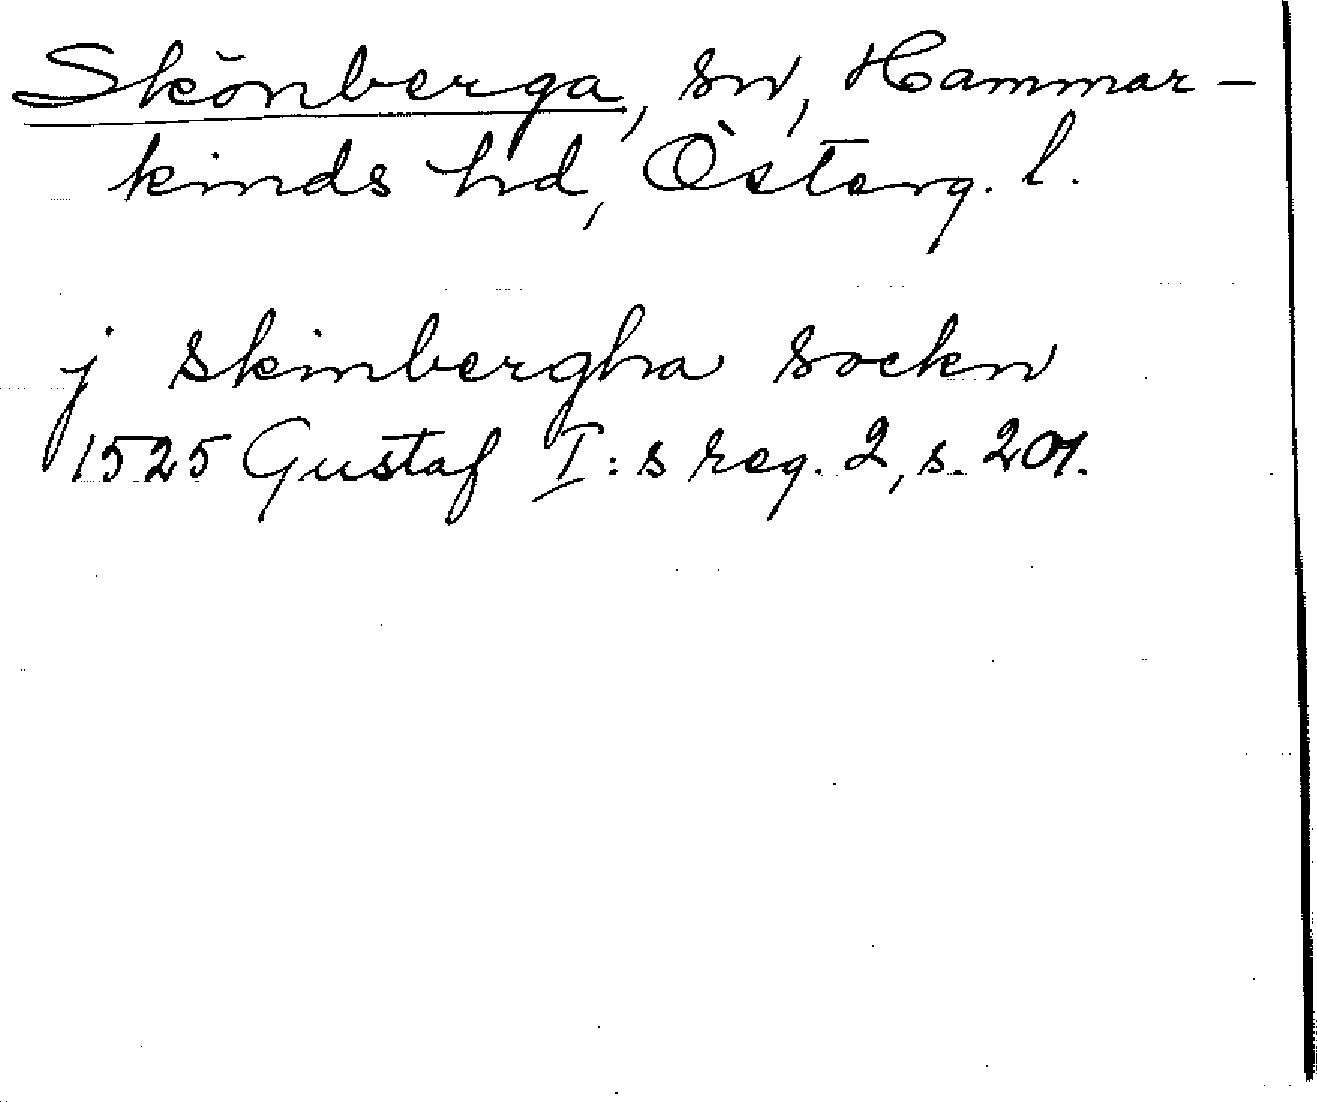 Skönberga, sn, Hammar-
kinds hd, Österg. l.
j skinbergha sockn
1525 Gustaf I:s reg. 2, s. 201.